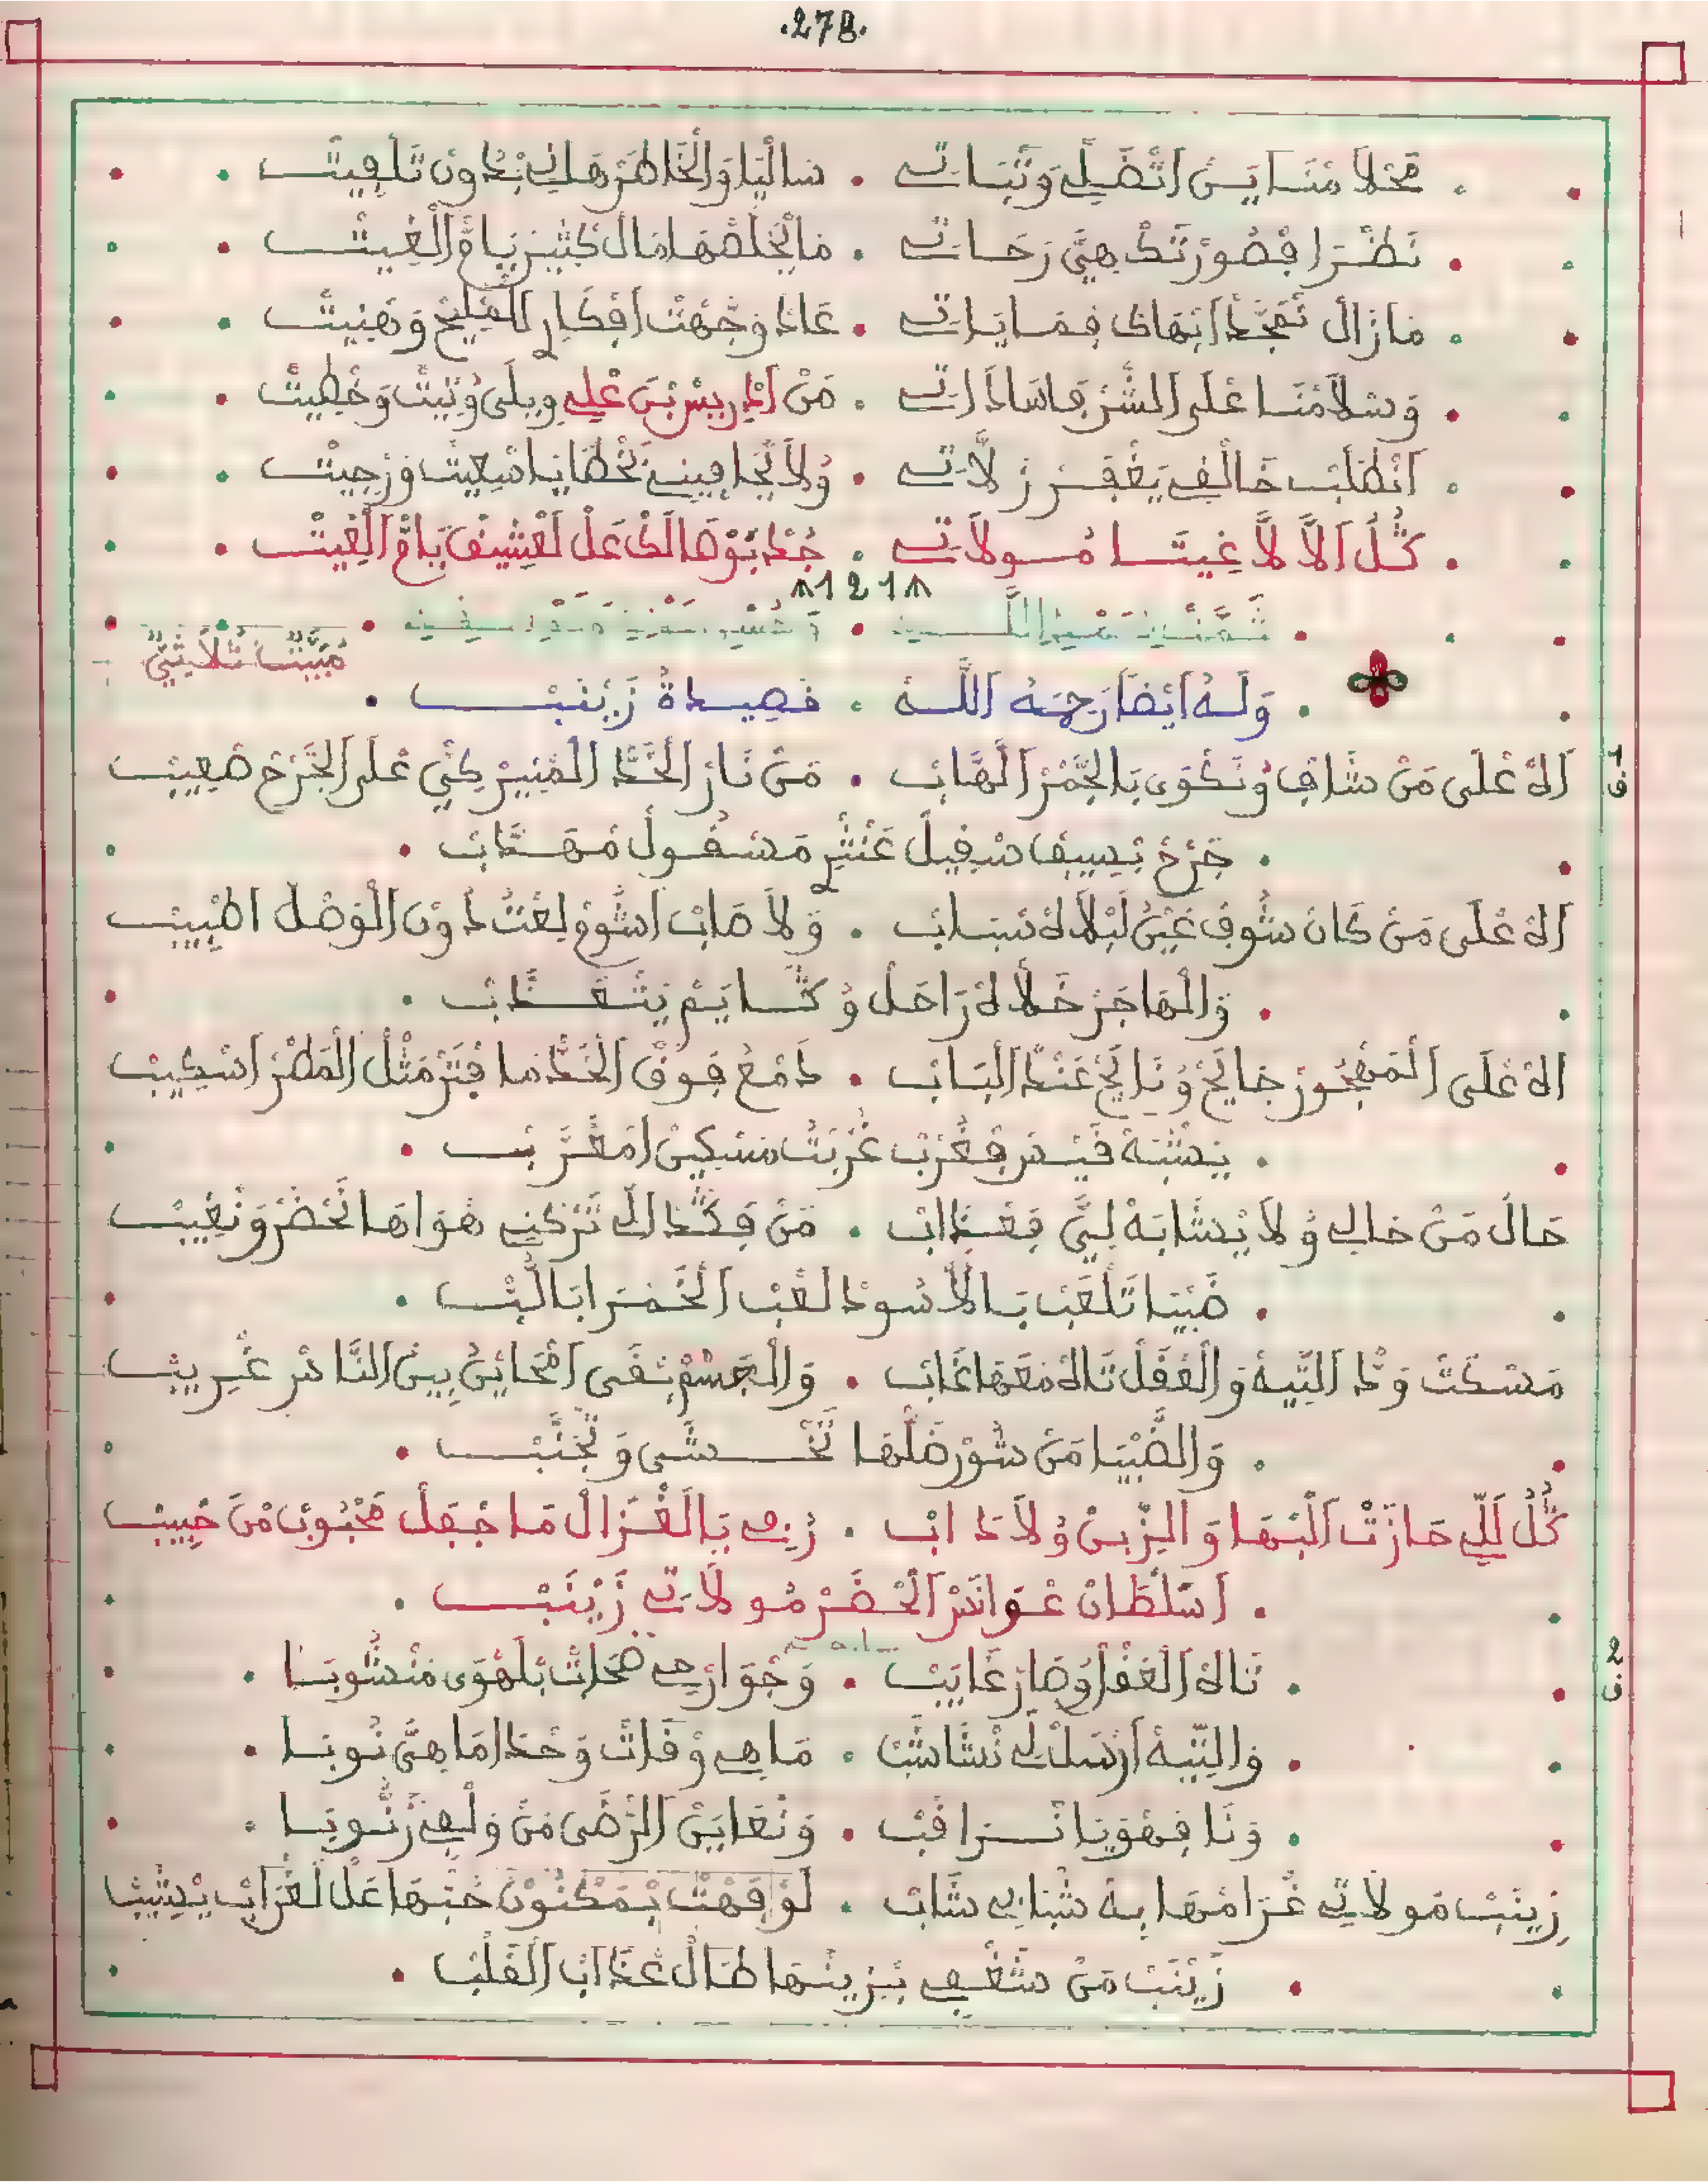 .278.
فَحْلاَ مْنَايَنْ اَتْضَلِّي وَتْبَاتِي . سَالْيَا وَالْخَاطَرْ هَانِي بْدُونْ تَلْفِيتْ
نَظْرَا فْصُورْتَكْ هِيَّ رَحَاتِي . مَايْخَلَّصْهَا مَالْ كْثِيرْ يَامّْ الْغِيتْ
مَازَالْ نْمَجَّدْ ابْهَاكْ فِمَايَاتِي .
وَسْلاَمْنَا عْلَى الشُّرْفَا سَادَاتِي . مَنْ اَدْرِيسْ بْنَ عْلِي وِيلَى وْنِيتْ وَخْطِيتْ
اَنْطْلَبْ خَالْقِي يَغْفَرْ زَلاَّتِي . وْلاَ يْجَافِينِي بَخْطَايَا اسْعِيتْ وَرْجِيتْ
كُلّْ اَلاَّ لاَّ غِيتَا مُولاَتِي . جُدْ بَوْصَالَكْ عَلْ لَعْشِيقْ يَامّْ الْغِيتْ
121
مْبَيَّتَا ثْلاَثِيَّ
وَلَهُ اَيْضًا رَحِمَهُ اَللَّهُ . قَصِيدَةُ زَيْنَبْ .
ف 1
اَلاهْ عْلَى مَنْ شَافْ وْنَكْوَى بَالْجْمَرْ الْهَّابْ . مَنْ نَارْ الْخَدّْ الْمْنِيرْ كِيِّ عْلَى الْجَرْحْ صْعِيبْ
. جَرْحْ بْسِيفْ سْقِيلْ عَنْتْرِ مَسْقُولْ مْهَنَّدْ .
اَلاهْ عْلَى مَنْ كَانْ شُوفْ عَيْنُ لَبْلاَهْ سْبَابْ . وَلاَ صَابْ لَعْتُ دُونْ الْوَصْلْ اطْبِيبْ
. وَالْهَاجَرْ خَلاَّهْ رَاحَلْ وْ يَتْعَدَّبْ .
اَلاهْ عْلَى الْمَهْجُورْ حَايَحْ وْنَايَحْ عَنْدْ الْبَابْ . دَمْعُ فُوقْ الْخَدّْ مَا فْتَرْ مَثْلْ الْمْطَرْ اسْكِيبْ
. يَشْبَهْ قَيْسْ فْغُرْبْ غُرْبْتُ مَسْكِينْ امْغَرَّبْ .
حَالْ مَنْ حَالِي وْلاَ يْشَابَهْ لِيَّ فِعْدَابْ . مَنْ فَكْدْ تَرْكَنِي هْوَاهَا نَحْضَرْ وَنْغِيبْ
. صَبْيَا تَلْعَبْ بَالاُّسُودْ لَعْبْ الْخَمْرَا بَالُّبّْ .
مَسْكَتْ وَدّْ التِّيهْ وَالْعْقَلْ تَاهْ مْعَهَا غَابْ . وَالْجَسْمْ بْقَى امْحَايَنْ بِينْ النَّاسْ غْرِيبْ
. وَالصَّبْيَا مَنْ شَوْرْ خَلّْهَا تَخْشَى وَتْجَنَّبْ .
كُلّْ لَلِّي حَازَتْ الْبْهَا وَالزِّينْ وْلاَدَابْ . زُرْنِي يَالْغْزَالْ مَا جْفَلْ مَحْبُوبْ مْنْ حْبِيبْ
. اَسَلْطَانْ عْوَانَسْ الْحَضَرْ مُولاَتِي زَيْنَبْ .
ف 2
. تَاهْ الْعْقَلْ وْصَارْ غَايَبْ . وَجْوَارْحِي ضْحَاتْ بَلْهْوَى مَنْشُوبَا .
. وَالتِّيهْ اَرْسَلْ لِي نْشَاشَبْ . مَاهِي وْقَاتْ وَحْدَا مَاهِيَّ نُوبَا .
. وَنَا فِهْوَيَا نْرَاقَبْ . وَنْعَايَنْ الرّْضَى مَنْ وَلْفِي رَّتُّوبَا .
زِينَبْ مُولاَتِي غْرَامْهَا بِهْ شْبَابِي شَابْ . لَوْ فَهْتْ بْمَكْنُونْ حُبّْهَا عَلْ لَغْرَابْ يْشِيبْ
. زَيْنَبْ مَنْ شَغْفِي بْزِينْهَا طَالْ عْدَابْ الْقَلْبْ .